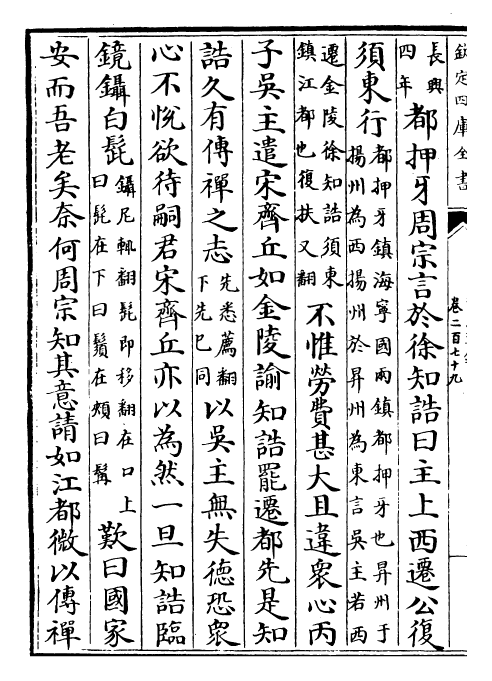 欽定四庫全書
卷二百七十九
長興
四年
都押牙周宗言於徐知誥曰主上西遷公復
須東行
都押牙鎮海寧國兩鎮都押牙也昇州于
揚州為西揚州於昇州為東言吳主若西
遷金陵徐知誥須東
鎮江都也復扶又翻
不惟勞費甚大且違衆心丙
子吳主遣宋齊丘如金陵諭知誥罷遷都先是知
誥久有傳禪之志
先悉薦翻
下先巳同
以吳主無失德恐衆
心不悅欲待嗣君宋齊丘亦以為然一旦知誥臨
鏡鑷白髭
鑷尼輒翻髭即移翻在口上
曰髭在下曰鬚在頰曰髯
歎曰國家
安而吾老矣奈何周宗知其意請如江都微以傳禪